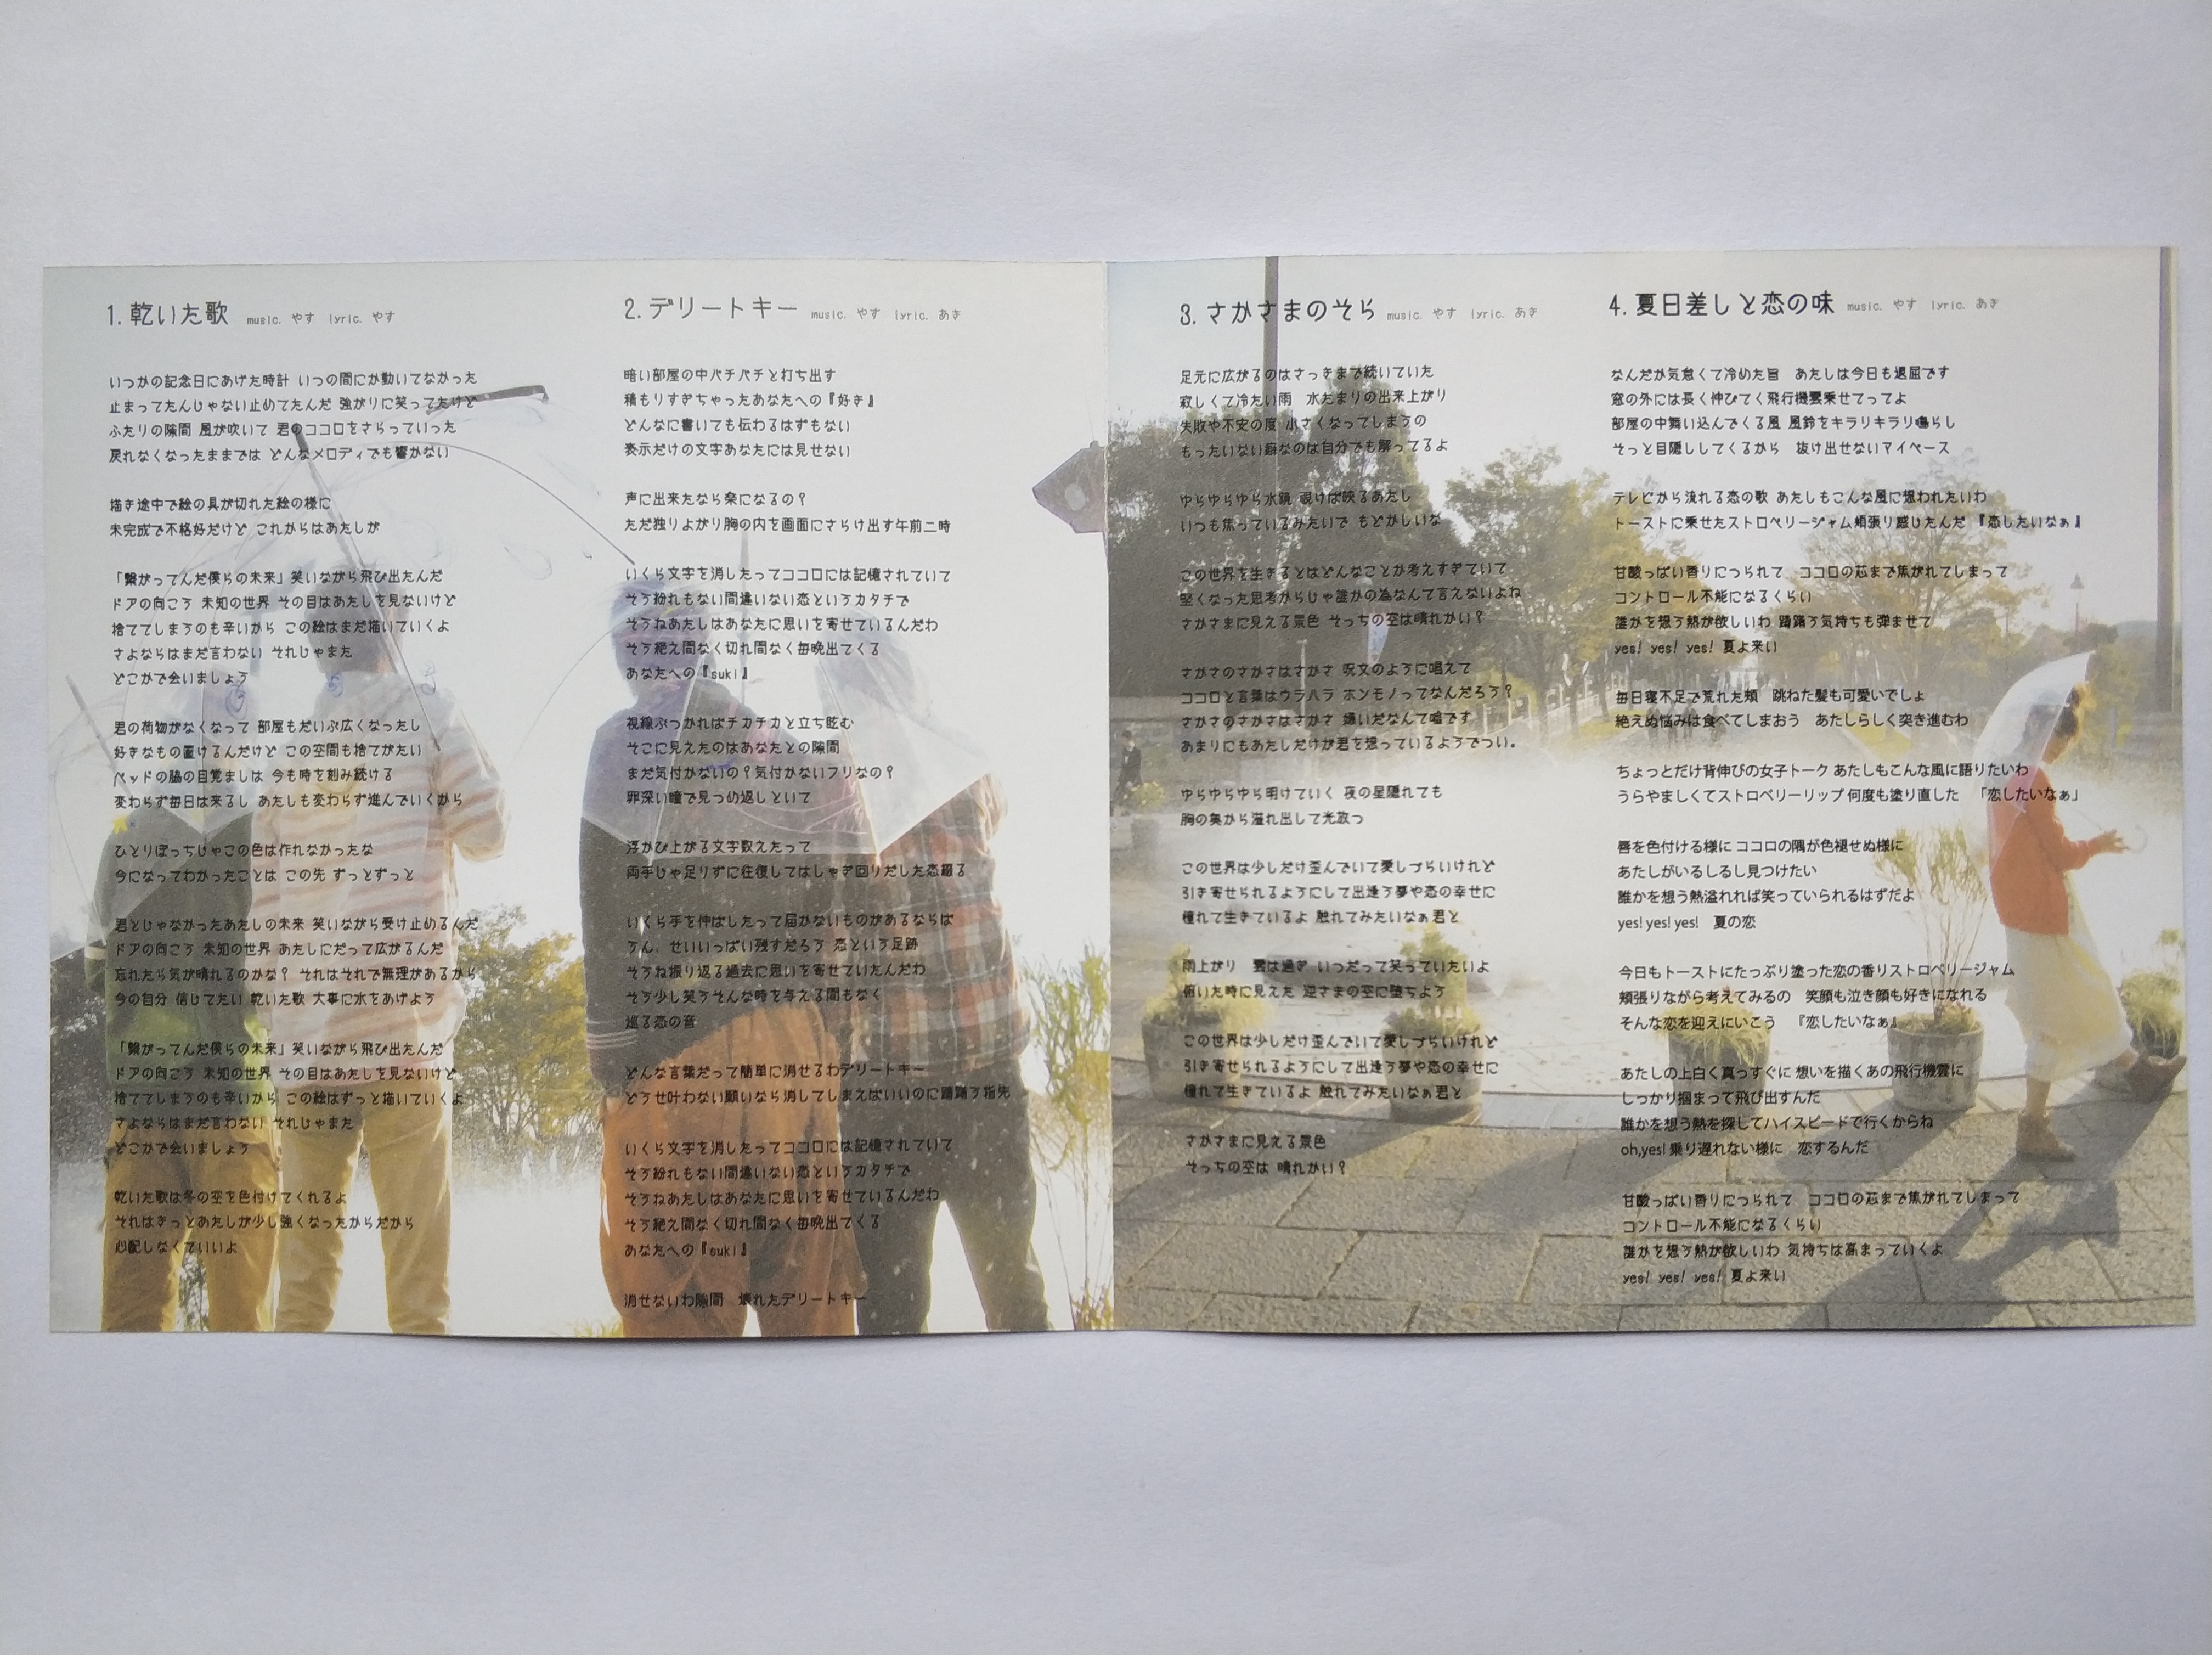 1. 乾いた歌 music. やす lyric. やす
いつかの記念日にあげた時計 いつの間にか動いてなかった
止まってたんじゃない止めてたんだ 強がりに笑ってたけど
ふたりの隙間 風が吹いて 君のココロをさらっていった
戻れなくなったままでは どんなメロディでも響かない
描き途中で絵の具が切れた絵の様に
未完成で不格好だけど これからはあたしが
「繋がってんだ僕らの未来」笑いながら飛び出たんだ
ドアの向こう 未知の世界 その目はあたしを見ないけど
捨ててしまうのも辛いから この絵はまだ描いていくよ
さよならはまだ言わない それじゃまた
どこかで会いましょう
君の荷物がなくなって 部屋もだいぶ広くなったし
好きなもの置けるんだけど この空間も捨てがたい
ベッドの脇の目覚ましは 今も時を刻み続ける
変わらず毎日は来るし あたしも変わらず進んでいくから
ひとりぼっちじゃこの色は作れなかったな
今になってわかったことは この先 ずっとずっと
君とじゃなかったあたしの未来 笑いながら受け止めるんだ
ドアの向こう 未知の世界 あたしにだって広がるんだ
忘れたら気が晴れるのかな? それはそれで無理があるから
今の自分 信じてたい 乾いた歌 大事に水をあげよう
「繋がってんだ僕らの未来」笑いながら飛び出たんだ
ドアの向こう 未知の世界 その目はあたしを見ないけど
捨ててしまうのも辛いから この絵はずっと描いていくよ
さよならはまだ言わない それじゃまた
どこかで会いましょう
乾いた歌は冬の空を色付けてくれるよ
それはきっとあたしが少し強くなったからだから
心配しなくていいよ
2. デリートキー music. やす lyric. あき
暗い部屋の中パチパチと打ち出す
積もりすぎちゃったあなたへの『好き』
どんなに書いても伝わるはずもない
表示だけの文字あなたには見せない
声に出来たなら楽になるの?
ただ独りよがり胸の内を画面にさらけ出す午前二時
いくら文字を消したってココロには記憶されていて
そう紛れもない間違いない恋というカタチで
そうねあたしはあなたに思いを寄せているんだわ
そう絶え間なく切れ間なく毎晩出てくる
あなたへの『suki』
視線ぶつかればチカチカと立ち眩む
そこに見えたのはあなたとの隙間
まだ気付かないの?気付かないフリなの?
罪深い瞳で見つめ返しといて
浮かび上がる文字数えたって
両手じゃ足りずに往復してはしゃぎ回りだした恋綴る
いくら手を伸ばしたって届かないものがあるならば
うん、せいいっぱい残すだろう 恋という足跡
そうね振り返る過去に思いを寄せていたんだわ
そう少し笑うそんな時を与える間もなく
巡る恋の音
どんな言葉だって簡単に消せるわデリートキー
どうせ叶わない願いなら消してしまえばいいのに躊躇う指先
いくら文字を消したってココロには記憶されていて
そう紛れもない間違いない恋というカタチで
そうねあたしはあなたに思いを寄せているんだわ
そう絶え間なく切れ間なく毎晩出てくる
あなたへの『suki』
消せないわ隙間 壊れたデリートキー
3. さかさまのそら music. やす lyric. あき
足元に広がるのはさっきまで続いていた
寂しくて冷たい雨 水たまりの出来上がり
失敗や不安の度 小さくなってしまうの
もったいない癖なのは自分でも解ってるよ
ゆらゆらゆら水鏡 覗けば映るあたし
いつも焦っているみたいで もどかしいな
この世界を生きるとはどんなことか考えすぎていて
堅くなった思考からじゃ誰かの為なんて言えないよね
さかさまに見える景色 そっちの空は晴れかい?
さかさのさかさはさかさ 呪文のように唱えて
ココロと言葉はウラハラ ホンモノってなんだろう?
さかさのさかさはさかさ 嫌いだなんて嘘です
あまりにもあたしだけが君を想っているようでつい。
ゆらゆらゆら明けていく 夜の星隠れても
胸の奥から溢れ出して光放つ
この世界は少しだけ歪んでいて愛しづらいけれど
引き寄せられるようにして出逢う夢や恋の幸せに
憧れて生きているよ 触れてみたいなぁ君と
雨上がり 雲は過ぎ いつだって笑っていたいよ
俯いた時に見えた 逆さまの空に堕ちよう
この世界は少しだけ歪んでいて愛しづらいけれど
引き寄せられるようにして出逢う夢や恋の幸せに
憧れて生きているよ 触れてみたいなぁ君と
さかさまに見える景色
そっちの空は 晴れかい?
4. 夏日差しと恋の味 music. やす lyric. あき
なんだか気怠くて冷めた旨 あたしは今日も退屈です
窓の外には長く伸びてく飛行機雲乗せてってよ
部屋の中舞い込んでくる風 風鈴をキラリキラリ鳴らし
そっと目隠ししてくるから 抜け出せないマイペース
テレビから流れる恋の歌 あたしもこんな風に想われたいわ
トーストに乗せたストロベリージャム頬張り感じたんだ 『恋したいなぁ』
甘酸っぱい香りにつられて ココロの芯まで焦がれてしまって
コントロール不能になるくらい
誰かを想う熱が欲しいわ 躊躇う気持ちも弾ませて
yes! yes! yes! 夏よ来い
毎日寝不足で荒れた頬 跳ねた髪も可愛いでしょ
絶えぬ悩みは食べてしまおう あたしらしく突き進むわ
ちょっとだけ背伸びの女子トーク あたしもこんな風に語りたいわ
うらやましくてストロベリーリップ 何度も塗り直した 「恋したいなぁ」
唇を色付ける様に ココロの隅が色褪せぬ様に
あたしがいるしるし見つけたい
誰かを想う熱溢れれば笑っていられるはずだよ
yes! yes! yes! 夏の恋
今日もトーストにたっぷり塗った恋の香りストロベリージャム
頬張りながら考えてみるの 笑顔も泣き顔も好きになれる
そんな恋を迎えにいこう 『恋したいなぁ』
あたしの上白く真っすぐに 想いを描くあの飛行機雲に
しっかり掴まって飛び出すんだ
誰かを想う熱を探してハイスピードで行くからね
oh,yes! 乗り遅れない様に 恋するんだ
甘酸っぱい香りにつられて ココロの芯まで焦がれてしまって
コントロール不能になるくらい
誰かを想う熱が欲しいわ 気持ちは高まっていくよ
yes! yes! yes! 夏よ来い